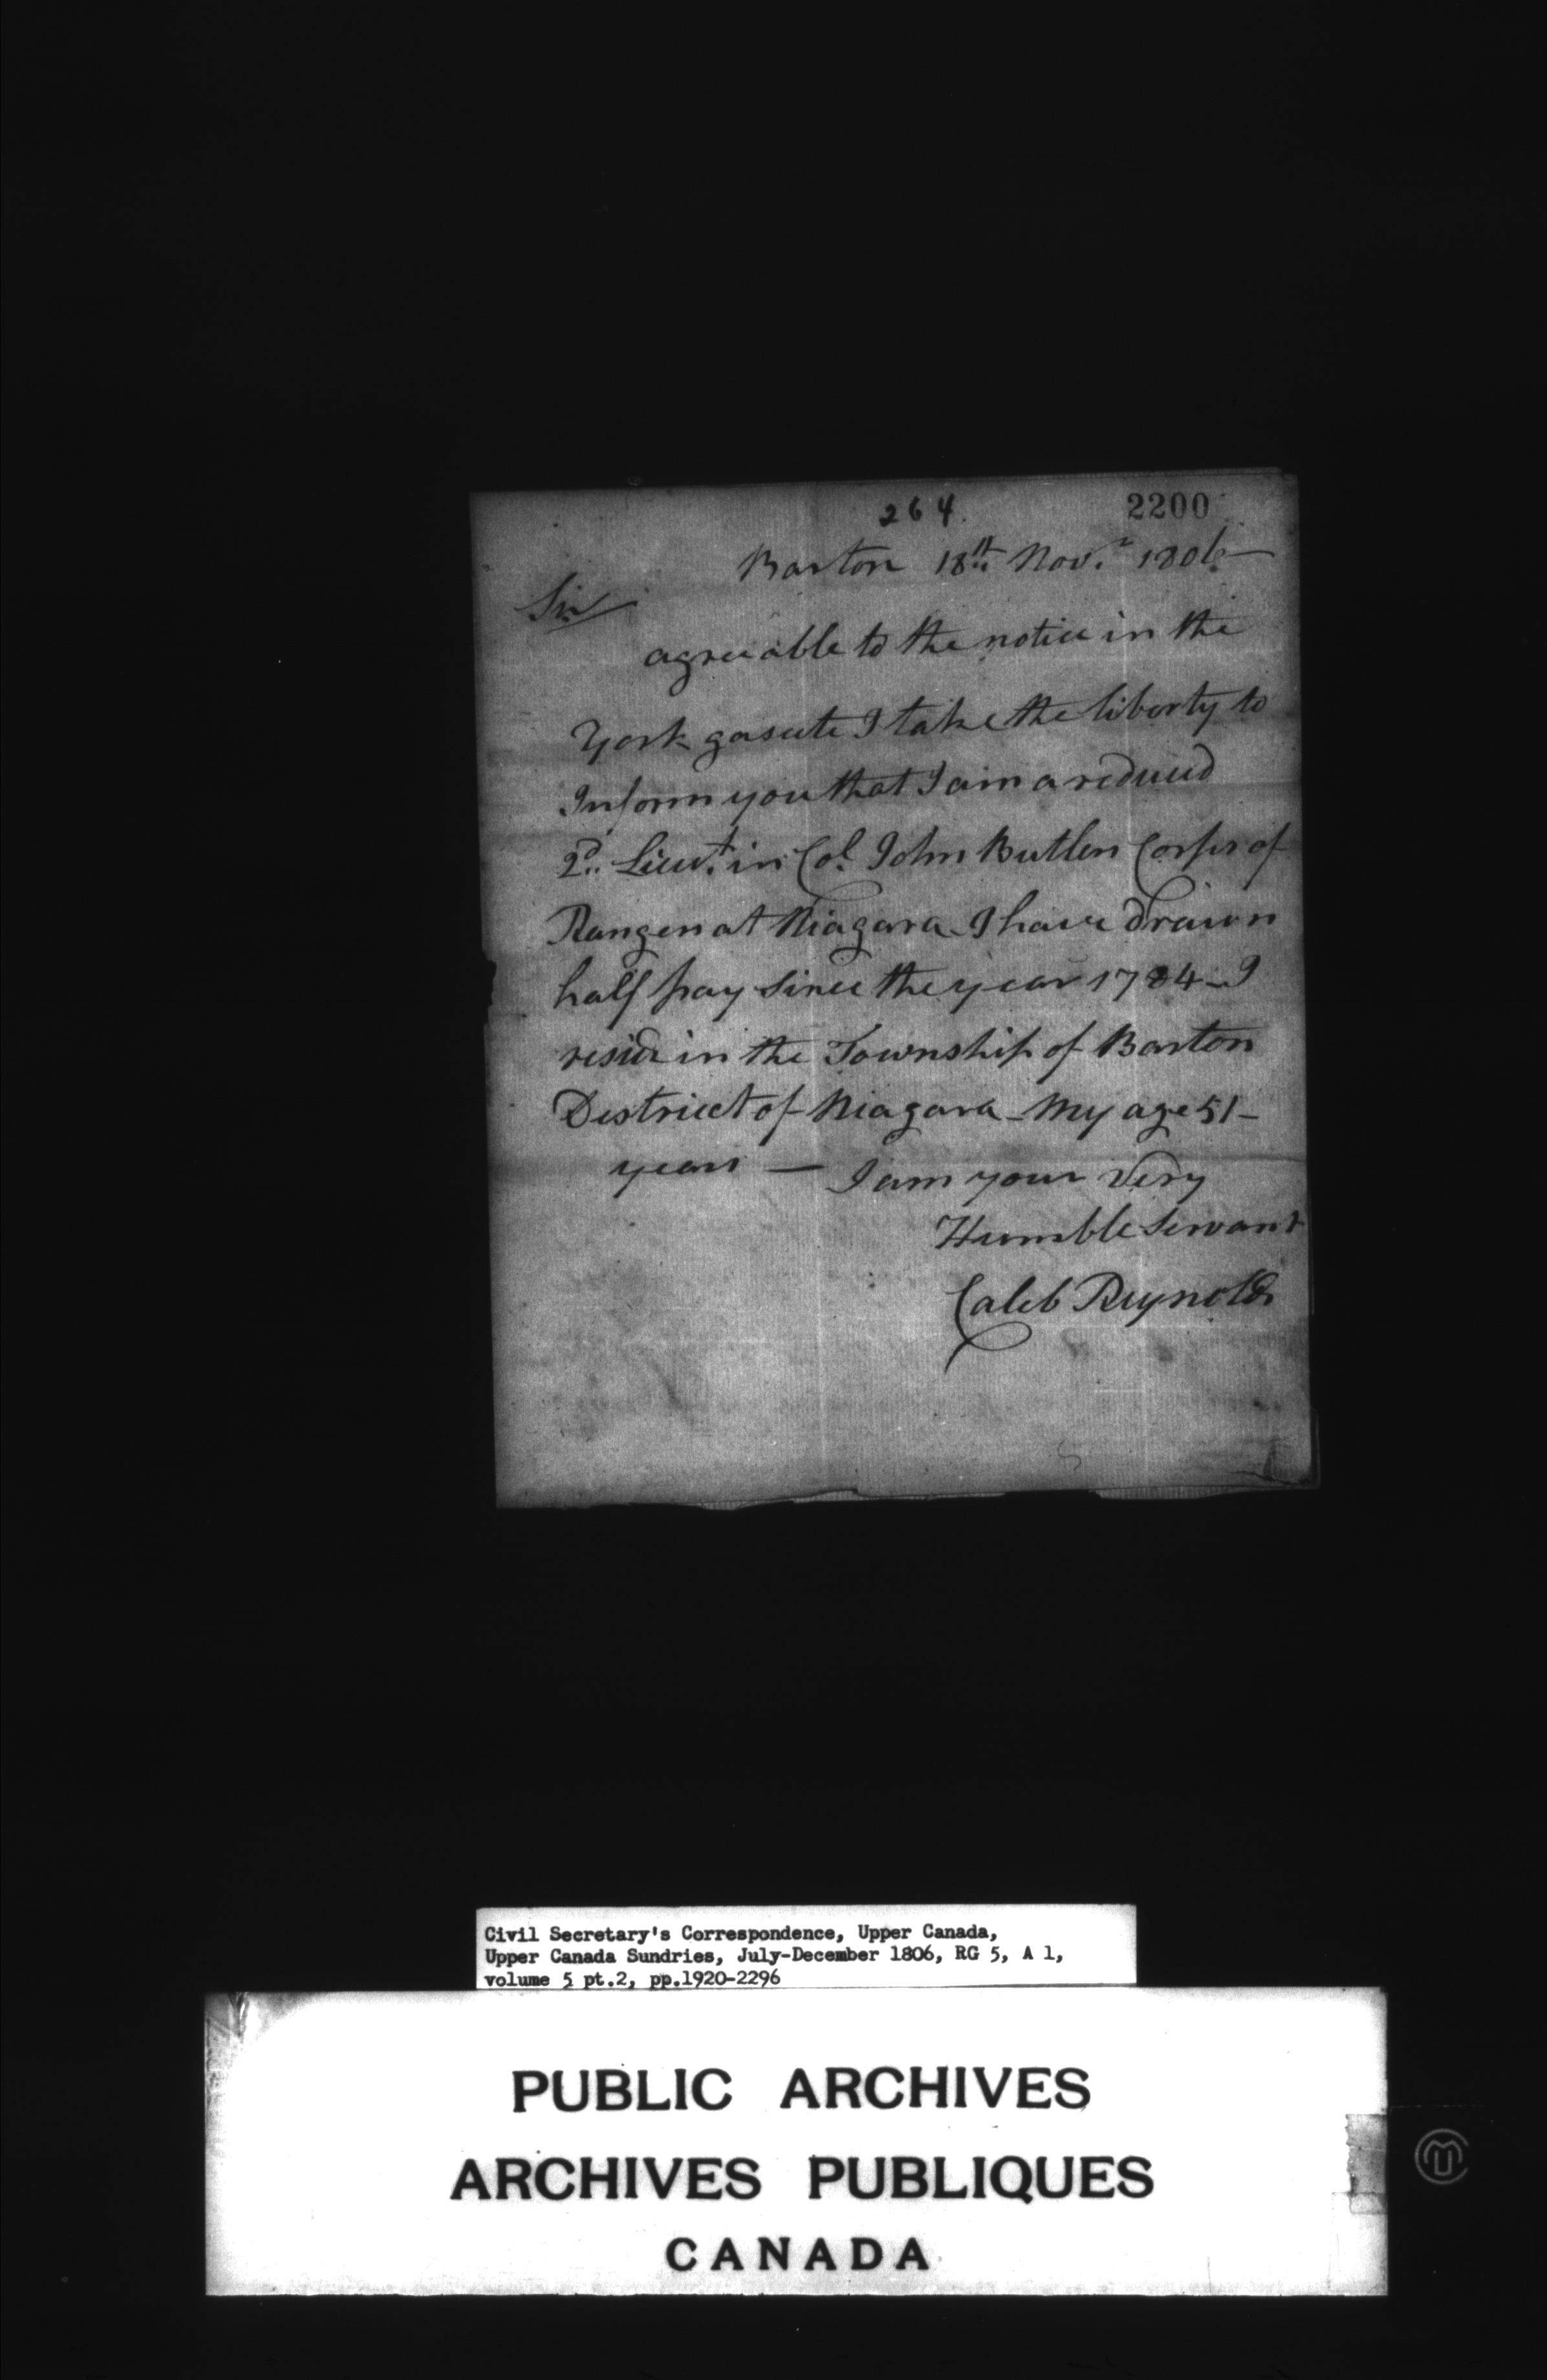 264. 2200
Barton 18th Novr. 1806 —
Sir
agreeable to the notice in the
York gasecte I take the liberty to
Inform you that I am a reduced
2d. Lieut. in Col. John Butlers Corps of
Rangers at Niagara I have drawn
half pay since the year 1784 – I
reside in the Township of Barton
Destricct of Niagara – My age 51 –
years — I am your Very
Humble Servant
Caleb Reynolds
Civil Secretary's Correspondence, Upper Canada,
Upper Canada Sundries, July-December 1806, RG 5, A 1,
volume 5 pt.2, pp.1920-2296
PUBLIC ARCHIVES
ARCHIVES PUBLIQUES
CANADA